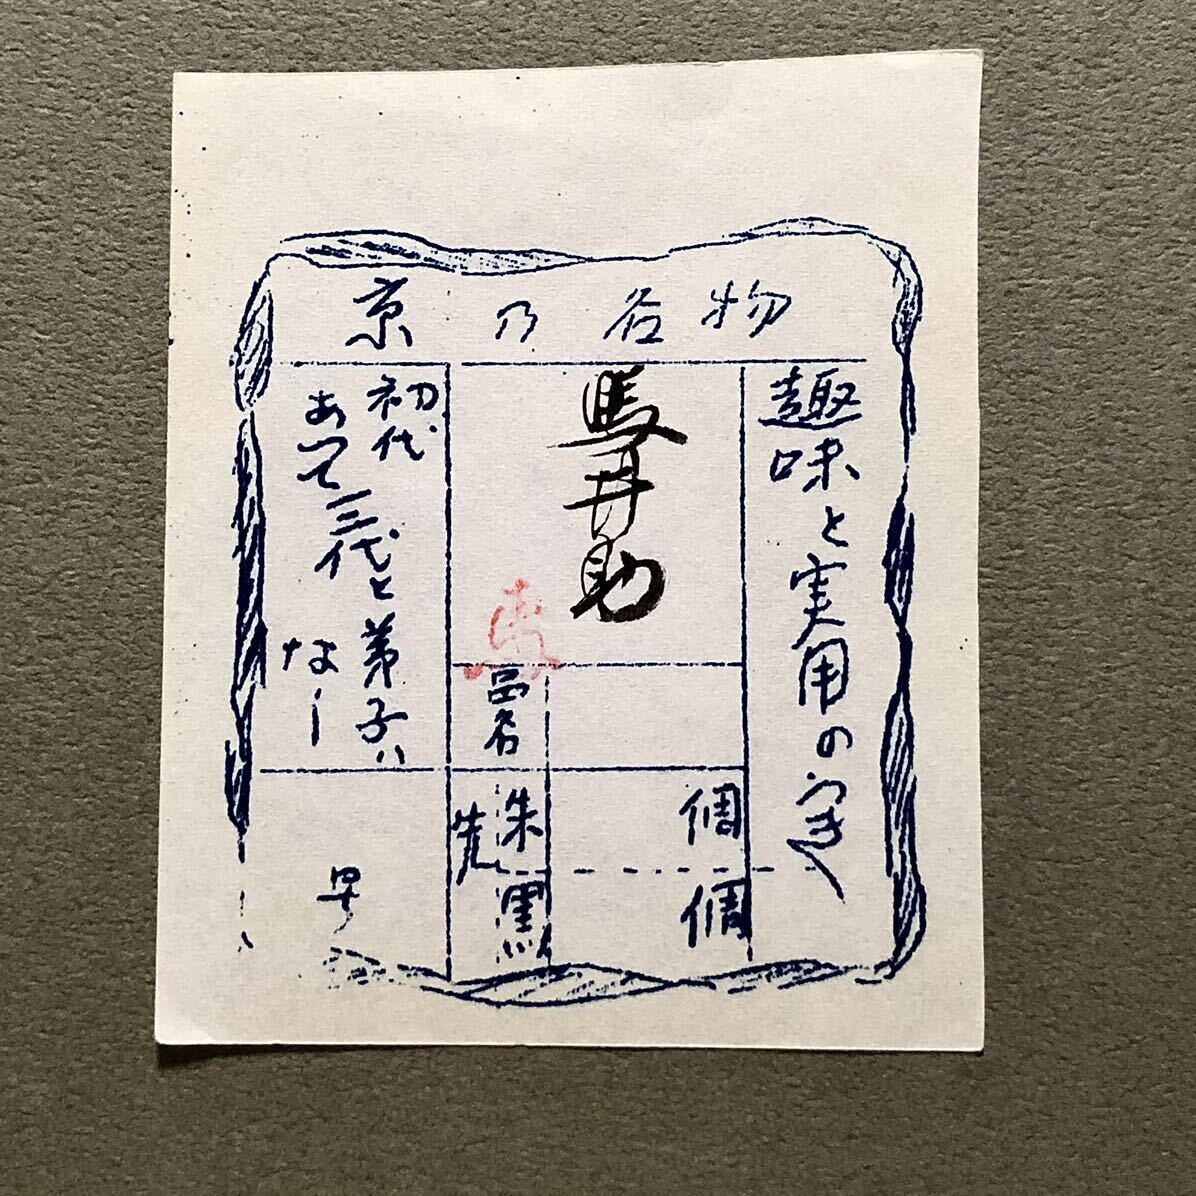 京乃名物
趣味と実用のうき
馬井助
初代
あって三代と弟子ハ
なし
品名
朱
黒
先
個
個
早